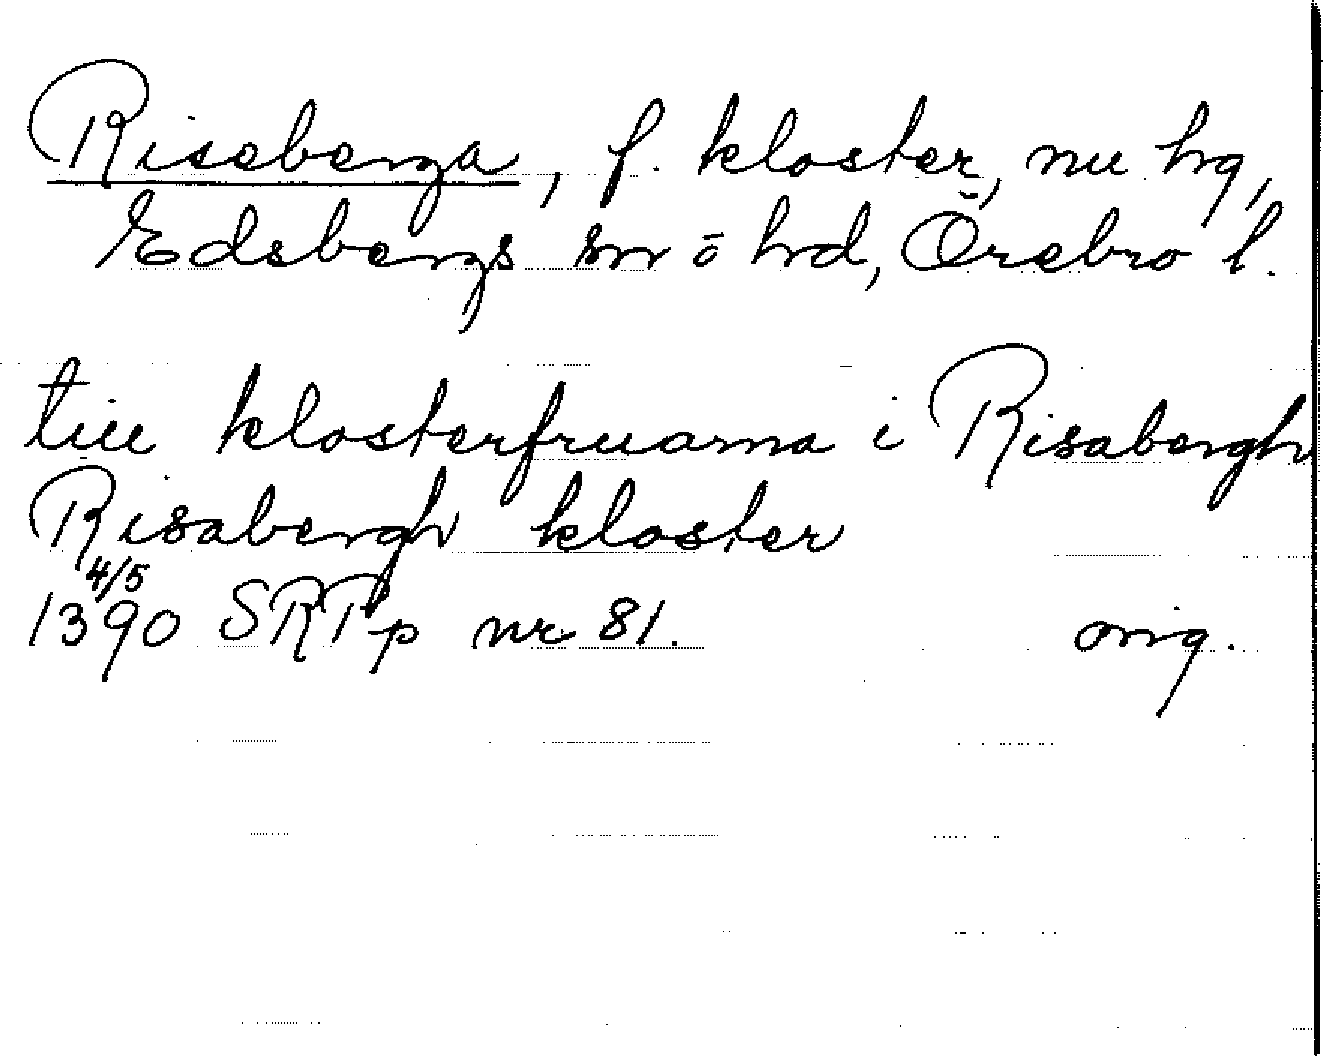 Riseberga, f. kloster, nu hg,
Edsbergs sn o hd, Örebro l.
till klosterfruarna i Risabergh
Risabergh kloster
4/5
1390 SRPp nr 81. orig.